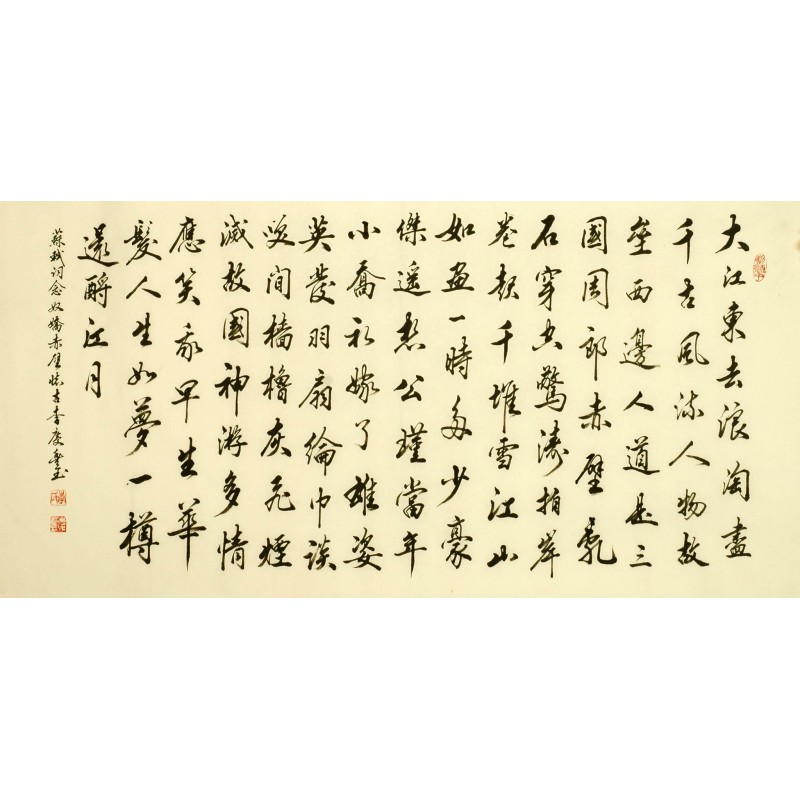 大江東去浪淘盡
千古風流人物故
壘西邊人道是三
國周郎赤壁亂
石穿空驚濤拍岸
卷起千堆雪江山
如畫一時多少豪
傑遥想公瑾當年
小喬初嫁了雄姿
英發羽扇綸巾談
笑間檣櫓灰飛煙
滅故國神游多情
應笑我早生華
髮人生如夢一樽
還酹江月
蘇軾詞念奴嬌赤壁懷古李慶玉